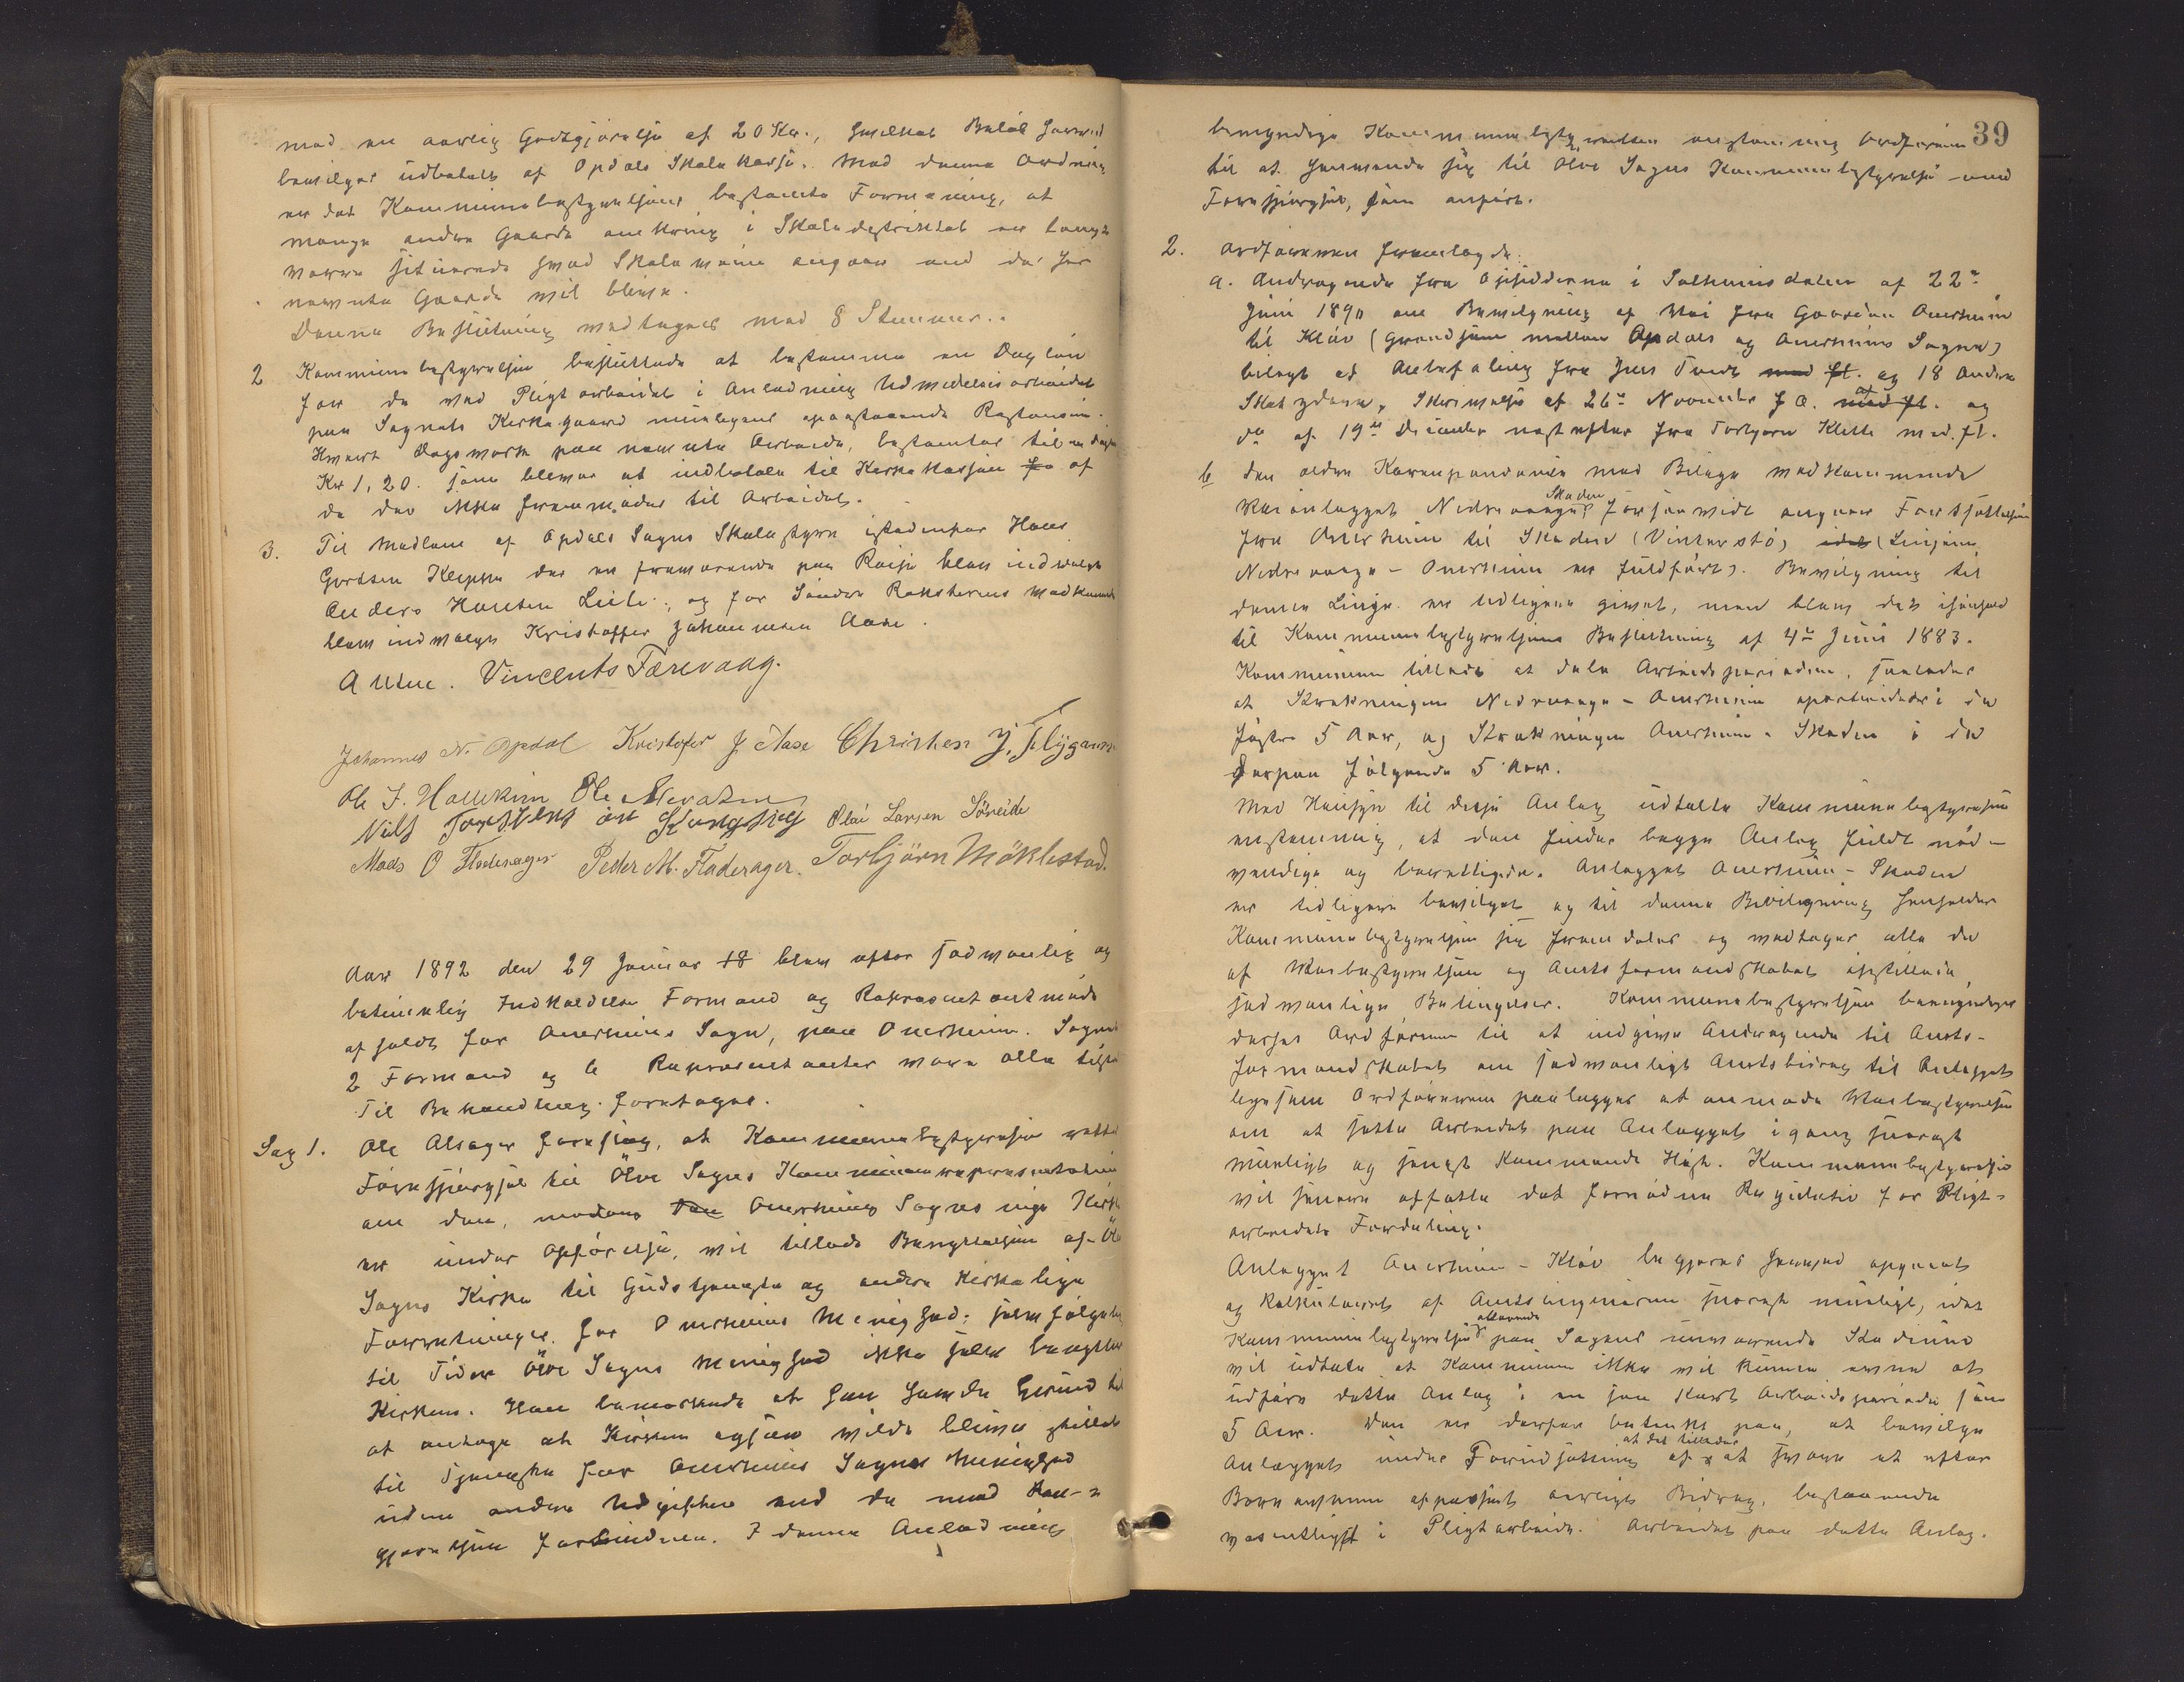 med en aarlig Godtgjørelse af 20 Kr., hvilket Beløb herved
bevilges udbetalt af Opdals Skolekasse. Med denne Ordning
er det Kommunebestyrelsens bestemte Formening, at
mange andre Gaarde omkring i Skoledistriktet er langt
værre situerede hvad Skoleveien angaar end de her
nævnte Gaarde vil blive.
Denne Beslutning vedtages med 8 Stemmer.
2 Kommunebestyrelsen besluttede at bestemme en Dagløn
for de ved Pligtarbeidet i Anledning Udvidelsesarbeidet
paa Sognets Kirkegaard muligens paastaaende Restancer.
Hvert Dagsværk paa nævnte Arbeide, bestemtes til
Kr 1,20. som bliver at indbetale til Kirkekassen af
de der ikke fremmøder til Arbeidet.
3. Til Medlem af Opdals Sogns Skolestyre istedenfor Hans
Gjertsen Kleppe der er fraværende paa Reise blev indvalgt
Anders Hansen Lie, og for Søndre Roksterens Vedkommende
blev indvalgt Kristoffer Johannesen Aase.
A Utne. Vincents Færevaag.
Johannes N. Opdal Kristofer J Aase Christen J. Flygansvær
Ole J. Haukeim Ole Nevatne
Nils Torstens øn Olai Larsen Søreide
Mads O Fladerager Peder M. Fladerager. Torbjörn Möklestad.
Aar 1892 den 29 Januar 18 blev efter sædvanlig og
betimelig Indkaldelse Formand og Repræsentantmøde
afholdt for Onerheims Sogn, paa Onerheim. Sognets
2 Formænd og 6 Repræsentanter vare alle tilstede
Til Behandling foretages.
Sag 1. Ole Alsager foreslog, at Kommunebestyrelsen rettede
Forespørgsel til Ölve Sogns Kommunerepresentation
om den, medens Onerheims Sogns nye Kirke
er under Opførelse, vil tillade Benyttelsen af Ölve
Sogns Kirke til Gudstjeneste og andre kirkelige
Forretninger for Onerheims Menighed: selvfølgelig
til Tider Ölve Sogns Menighed ikke selv benytter
Kirken. Han bemærkede at han havde Grund til
at antage at Kirkens egser vilde blive stillet
til Tjeneste for Onerheims Sogns Menighed
uden andre Udgifter end de med Ren-
gjørelsen forbundne. I denne Anledning
39
bemyndiges Kommunebestyrelsen enstemmig Ordføreren
til at henvende sig til Ölve Sogns Kommunebestyrelse med
Forespørgsel, som anført.
2. Ordføreren fremlagde:
a. Andragende fra Opsidderne i Solheimsdalen af 22de
Juni 1890 om Bevilgning af Vei fra Gaarden Onerheim
til Kløv (Grændsen mellem Opdals og Onerheims Sogne)
bilagt af Anbefaling fra Jens Tveit med fl. og 18 andre
Skatydere, Skrivelse af 26de November f A. af med fl. og
do af 19de December næstefter fra Torbjørn Klette med.fl.
b den ældre Korespondence med Bilage vedkommende
Veianlægget Nedrevaage Skaden forsaavidt angaar Fortsættelsen
fra Onerheim til Skaden (Vinterstø) idet (Linjen
Nedrevaage - Onerheim er fuldført). Bevilgning til
denne Linje er tidligere givet, men blev det ihenhold
til Kommunebestyrelsens Beslutning af 4de Juni 1883.
Kommunen tilladt at dele Arbeidsperioden, saaledes
at Strækningen Nedrevaage - Onerheim oparbeidedes i de
første 5 Aar, og Strækningen Onerheim - Skaden i de
derpaa følgende 5 Aar.
Med Hensyn til disse Anlæg udtalte Kommunebestyrelsen
enstemmig, at den finder begge Anlæg fuldt nød-
vendige og berettigede. Anlægget Onerheim - Skaden
er tidligere bevilget og til denne Bevilgning henholder
Kommunebestyrelsen sig fremdeles og vedtager alle de
af Veibestyrelsen og Amtsformandskabet opstillede
sædvanlige Betingelser. Kommunebestyrelsen bemyndiger
derhos Ordføreren til at indgive Andragende til Amts-
formandskabet om sædvanligt Amtsbidrag til Anlægget
ligesom Ordføreren paalægges at anmode Veibestyrelsen
om at sætte Arbeidet paa Anlægget igang snarest
muligt og senest kommende Høst. Kommunebestyrelsen
vil senere affatte det fornødne Regulativ for Pligt-
arbeidets Fordeling.
Anlægget Onerheim - Kløv begjæres herved opgaaet
og kalkuleret af Amtsingeniøren snarest muligt, idet
Kommunebestyrelsen allerede paa Sagens nuværende Stadium
vil udtale at Kommunen ikke vil kunne evne at
udføre dette Anlæg i en saa kort Arbeidsperiode som
5 Aar. Den er derfor betænkt paa, at bevilge
Anlægget under Forudsætning af at det tillades at svare et efter
Bæreevnen afpasset aarligt Bidrag, bestaaende
væsentligst i Pligtarbeide. Arbeidet paa dette Anlæg.